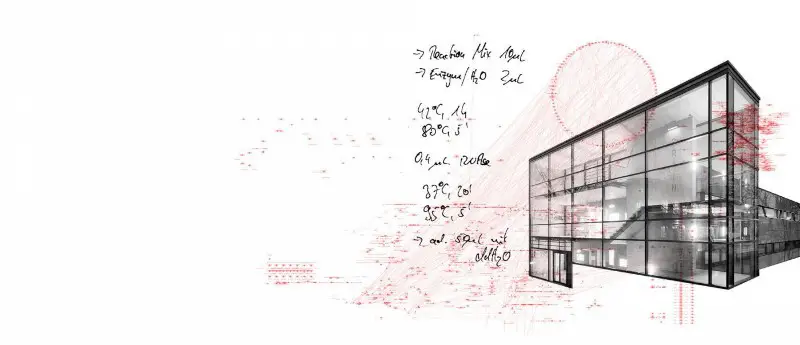 → Reaction Mix 10µL
→ Enzym/H₂O 2µL
42°C, 1h
80°C, 5'
0,4µL RNAse
37°C, 20'
95°C, 5'
→ ad. 50µL mit
ddH₂O